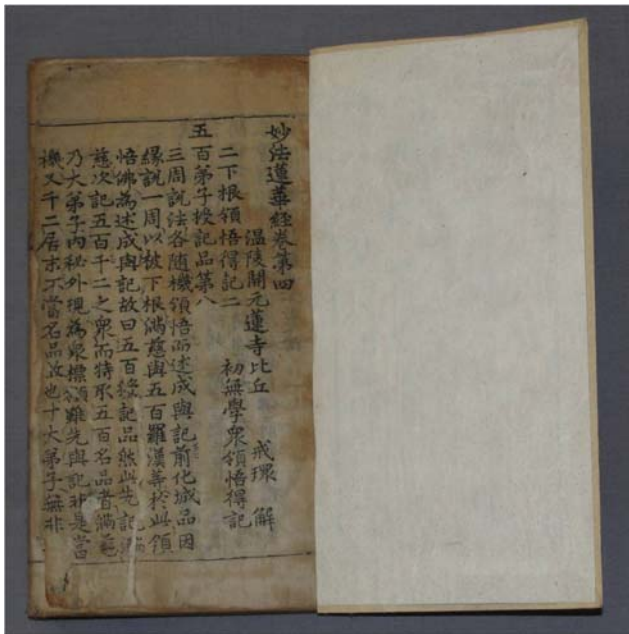 妙法蓮華經卷第四
溫陵開元蓮寺比丘 戒環 解
二下根領悟得記二 初無學眾領悟得記
五百弟子授記品第八
三周說法各隨機領悟而述成與記前化城品因
緣說一周以被下根滿慈與五百羅漢等於此領
悟佛為述成與記故曰五百授記品然此先記滿
慈次記五百千二之眾而特取五百名品者滿慈
乃大弟子內秘外現為眾標領雖先與記非是當
機又千二居末不當名品故也十大弟子無非